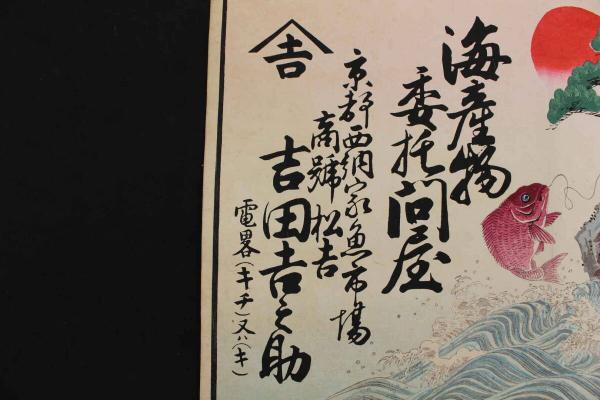 海産物
委托問屋
京都西網家魚市場
商號松吉
吉田吉之助
電畧(キチ)又ハ(キ)
吉